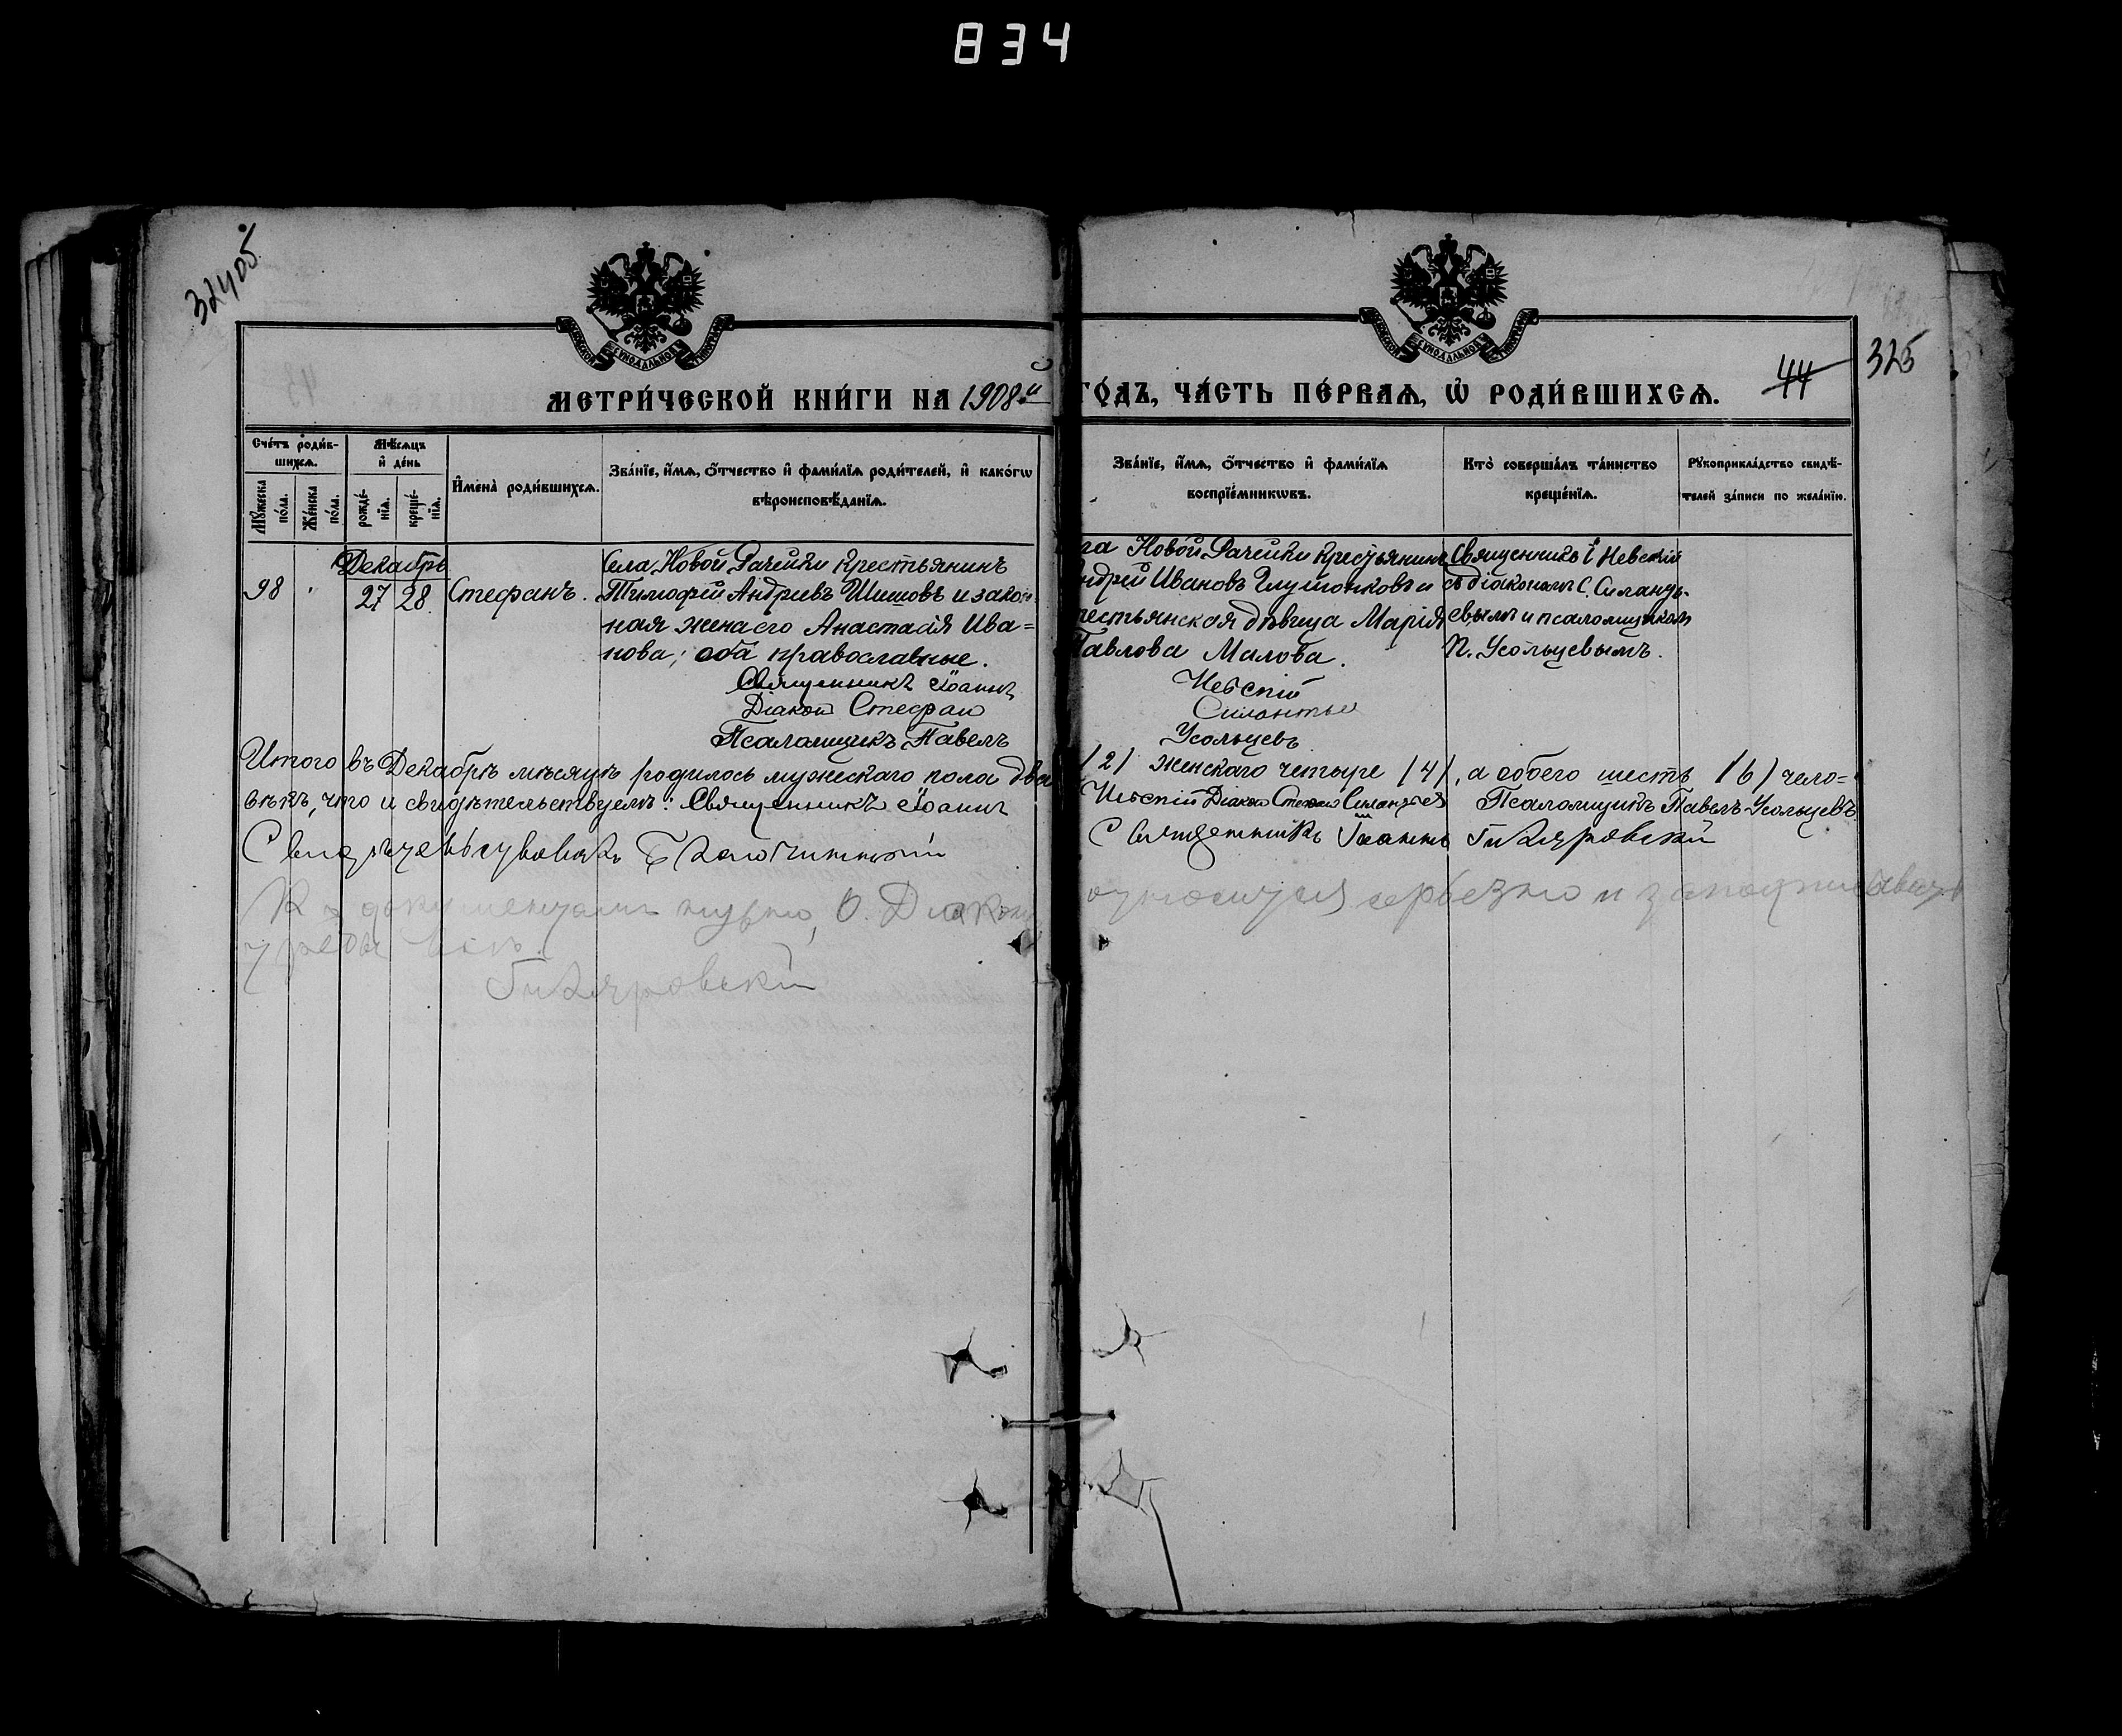 834
32405
44
325
МЕТРИ́ЧЕСКОЙ КНИ́ГИ НА 1908й
ГО́ДЪ, ЧА́СТЬ ПЕ́РВАѦ, Ѡ҆ РОДИ́ВШИХСѦ.
Сче́тъ роди́в-
шихсѧ.
Мѣ́сѧцъ
и҆ де́нь
Мꙋ́жеска по́ла.
Же́нска по́ла.
рожде́-нїѧ.
креще́-нїѧ.
И҆мена̀ роди́вшихсѧ.
Зва́нїе, и҆́мѧ, о҆́тчество и҆ фами́лїѧ роди́телей, и҆ како́гѡ
вѣроисповѣ́данїѧ.
Зва́нїе, и҆́мѧ, о҆́тчество и҆ фами́лїѧ
воспрїе́мникѡвъ.
Кто̀ соверша́лъ та́инство
креще́нїѧ.
Рꙋкоприкла́дство свидѣ́-
телей за́писи по жела́нїю.
Декабрь
98 " 27 28. Стефанъ.
Села Новой Рачейки крестьянинъ
Тимофей Андреевъ Шишовъ и закон-
ная жена его Анастасія Ива=
нова; оба православные.
Священникъ Іоаннъ
Діаконъ Стефанъ
Псаломщикъ Павелъ
ла Новой Рачейки крестьянинъ
ндрей Ивановъ Глушонковъ и
рестьянская дѣвица Марія
Павлова Малова.
Невскій
Силантьевъ
Усольцевъ
Священникъ І Невскій
съ діакономъ С. Силанть-
евымъ и псаломщикомъ
П. Усольцевымъ.
Итого въ Декабрѣ мѣсяцѣ родилось мужескаго пола два /2/ женскаго четыре /4/, а обоего шесть /6/ чело=
вѣкъ, что и свидѣтельствуемъ: Священникъ Іоаннъ Невскій Діаконъ Стефанъ Силантьевъ Псаломщикъ Павелъ Усольцевъ
Свидѣтельствовалъ Благочинный Священникъ Іоаннъ Гиляровскій
Къ документамъ нужно, О. Діаконъ, относиться серьезно и
Гиляровскій